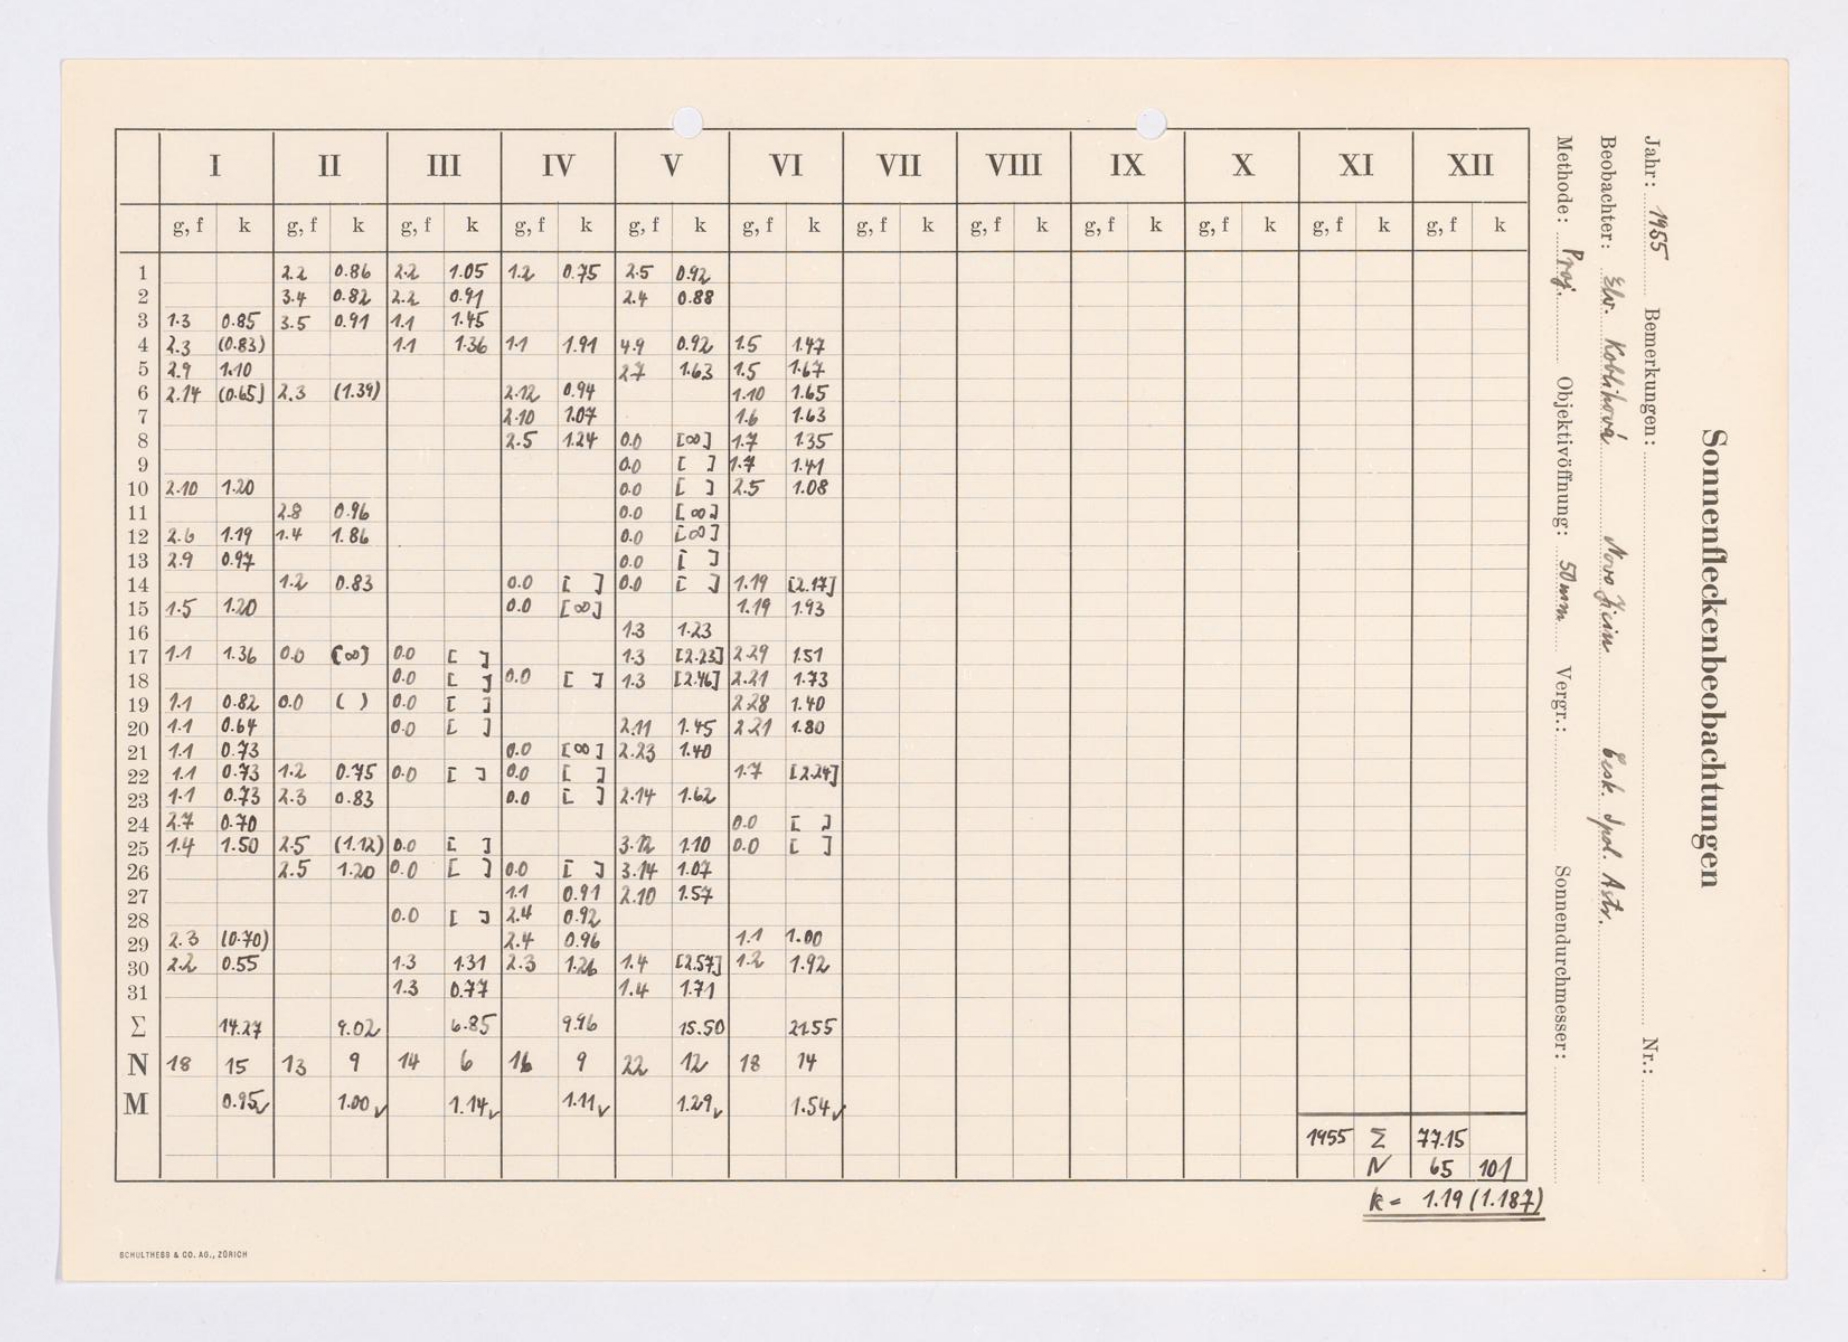 Sonnenfleckenbeobachtungen
Jahr: 1955 Bemerkungen: Nr.:
Beobachter: Elv. Koblihová Novo Jicin Cesk. Spol. Astr.
Methode: Proj. Objektivöffnung: 50 mm Vergr.: Sonnendurchmesser:
I II III IV V VI VII VIII IX X XI XII
g, f k g, f k g, f k g, f k g, f k g, f k g, f k g, f k g, f k g, f k g, f k g, f k
1 2.2 0.86 2.2 1.05 1.2 0.75 2.5 0.92
2 3.4 0.82 2.2 0.91 2.4 0.88
3 1.3 0.85 3.5 0.91 1.1 1.45
4 2.3 (0.83) 1.1 1.36 1.1 1.91 4.9 0.92 1.5 1.47
5 2.9 1.10 2.7 1.63 1.5 1.67
6 2.14 (0.65) 2.3 (1.39) 2.12 0.94 1.10 1.65
7 2.10 1.07 1.6 1.63
8 2.5 1.24 0.0 [∞] 1.7 1.35
9 0.0 [ ] 1.7 1.41
10 2.10 1.20 0.0 [ ] 2.5 1.08
11 2.8 0.96 0.0 [∞]
12 2.6 1.19 1.4 1.86 0.0 [∞]
13 2.9 0.97 0.0 [ ]
14 1.2 0.83 0.0 [ ] 0.0 [ ] 1.19 [2.17]
15 1.5 1.20 0.0 [∞] 1.19 1.93
16 1.3 1.23
17 1.1 1.36 0.0 [∞] 0.0 [ ] 1.3 [2.23] 2.29 1.51
18 0.0 [ ] 0.0 [ ] 1.3 [2.46] 2.21 1.73
19 1.1 0.82 0.0 ( ) 0.0 [ ] 2.28 1.40
20 1.1 0.64 0.0 [ ] 2.11 1.45 2.21 1.80
21 1.1 0.73 0.0 [∞] 2.23 1.40
22 1.1 0.73 1.2 0.75 0.0 [ ] 0.0 [ ] 1.7 [2.24]
23 1.1 0.73 2.3 0.83 0.0 [ ] 2.14 1.62
24 2.7 0.70 0.0 [ ]
25 1.4 1.50 2.5 (1.12) 0.0 [ ] 3.12 1.10 0.0 [ ]
26 2.5 1.20 0.0 [ ] 0.0 [ ] 3.14 1.07
27 1.1 0.91 2.10 1.57
28 0.0 [ ] 2.4 0.92
29 2.3 (0.70) 2.4 0.96 1.1 1.00
30 2.2 0.55 1.3 1.31 2.3 1.26 1.4 [2.57] 1.2 1.92
31 1.3 0.77 1.4 1.71
Σ 14.27 9.02 6.85 9.96 15.50 21.55
N 18 15 13 9 14 6 16 9 22 12 18 14
M 0.95✓ 1.00✓ 1.14✓ 1.11✓ 1.29✓ 1.54✓
1955 Σ 77.15
N 65 101
k = 1.19 (1.187)
SCHULTHESS & CO. AG., ZÜRICH